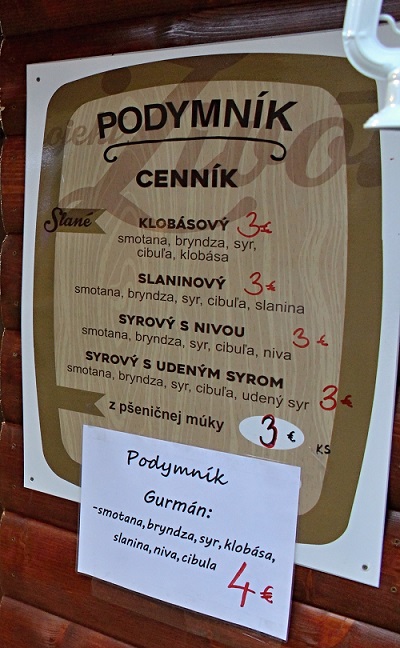 PODYMNÍK
CENNÍK
Slané
KLOBÁSOVÝ 3€
smotana, bryndza, syr,
cibuľa, klobása
SLANINOVÝ 3€
smotana, bryndza, syr, cibuľa, slanina
SYROVÝ S NIVOU 3€
smotana, bryndza, syr, cibuľa, niva
SYROVÝ S UDENÝM SYROM
smotana, bryndza, syr, cibuľa, udený syr 3€
z pšeničnej múky 3 €
KS
Podymník
Gurmán:
-smotana, bryndza, syr, klobása,
slanina, niva, cibula
4€